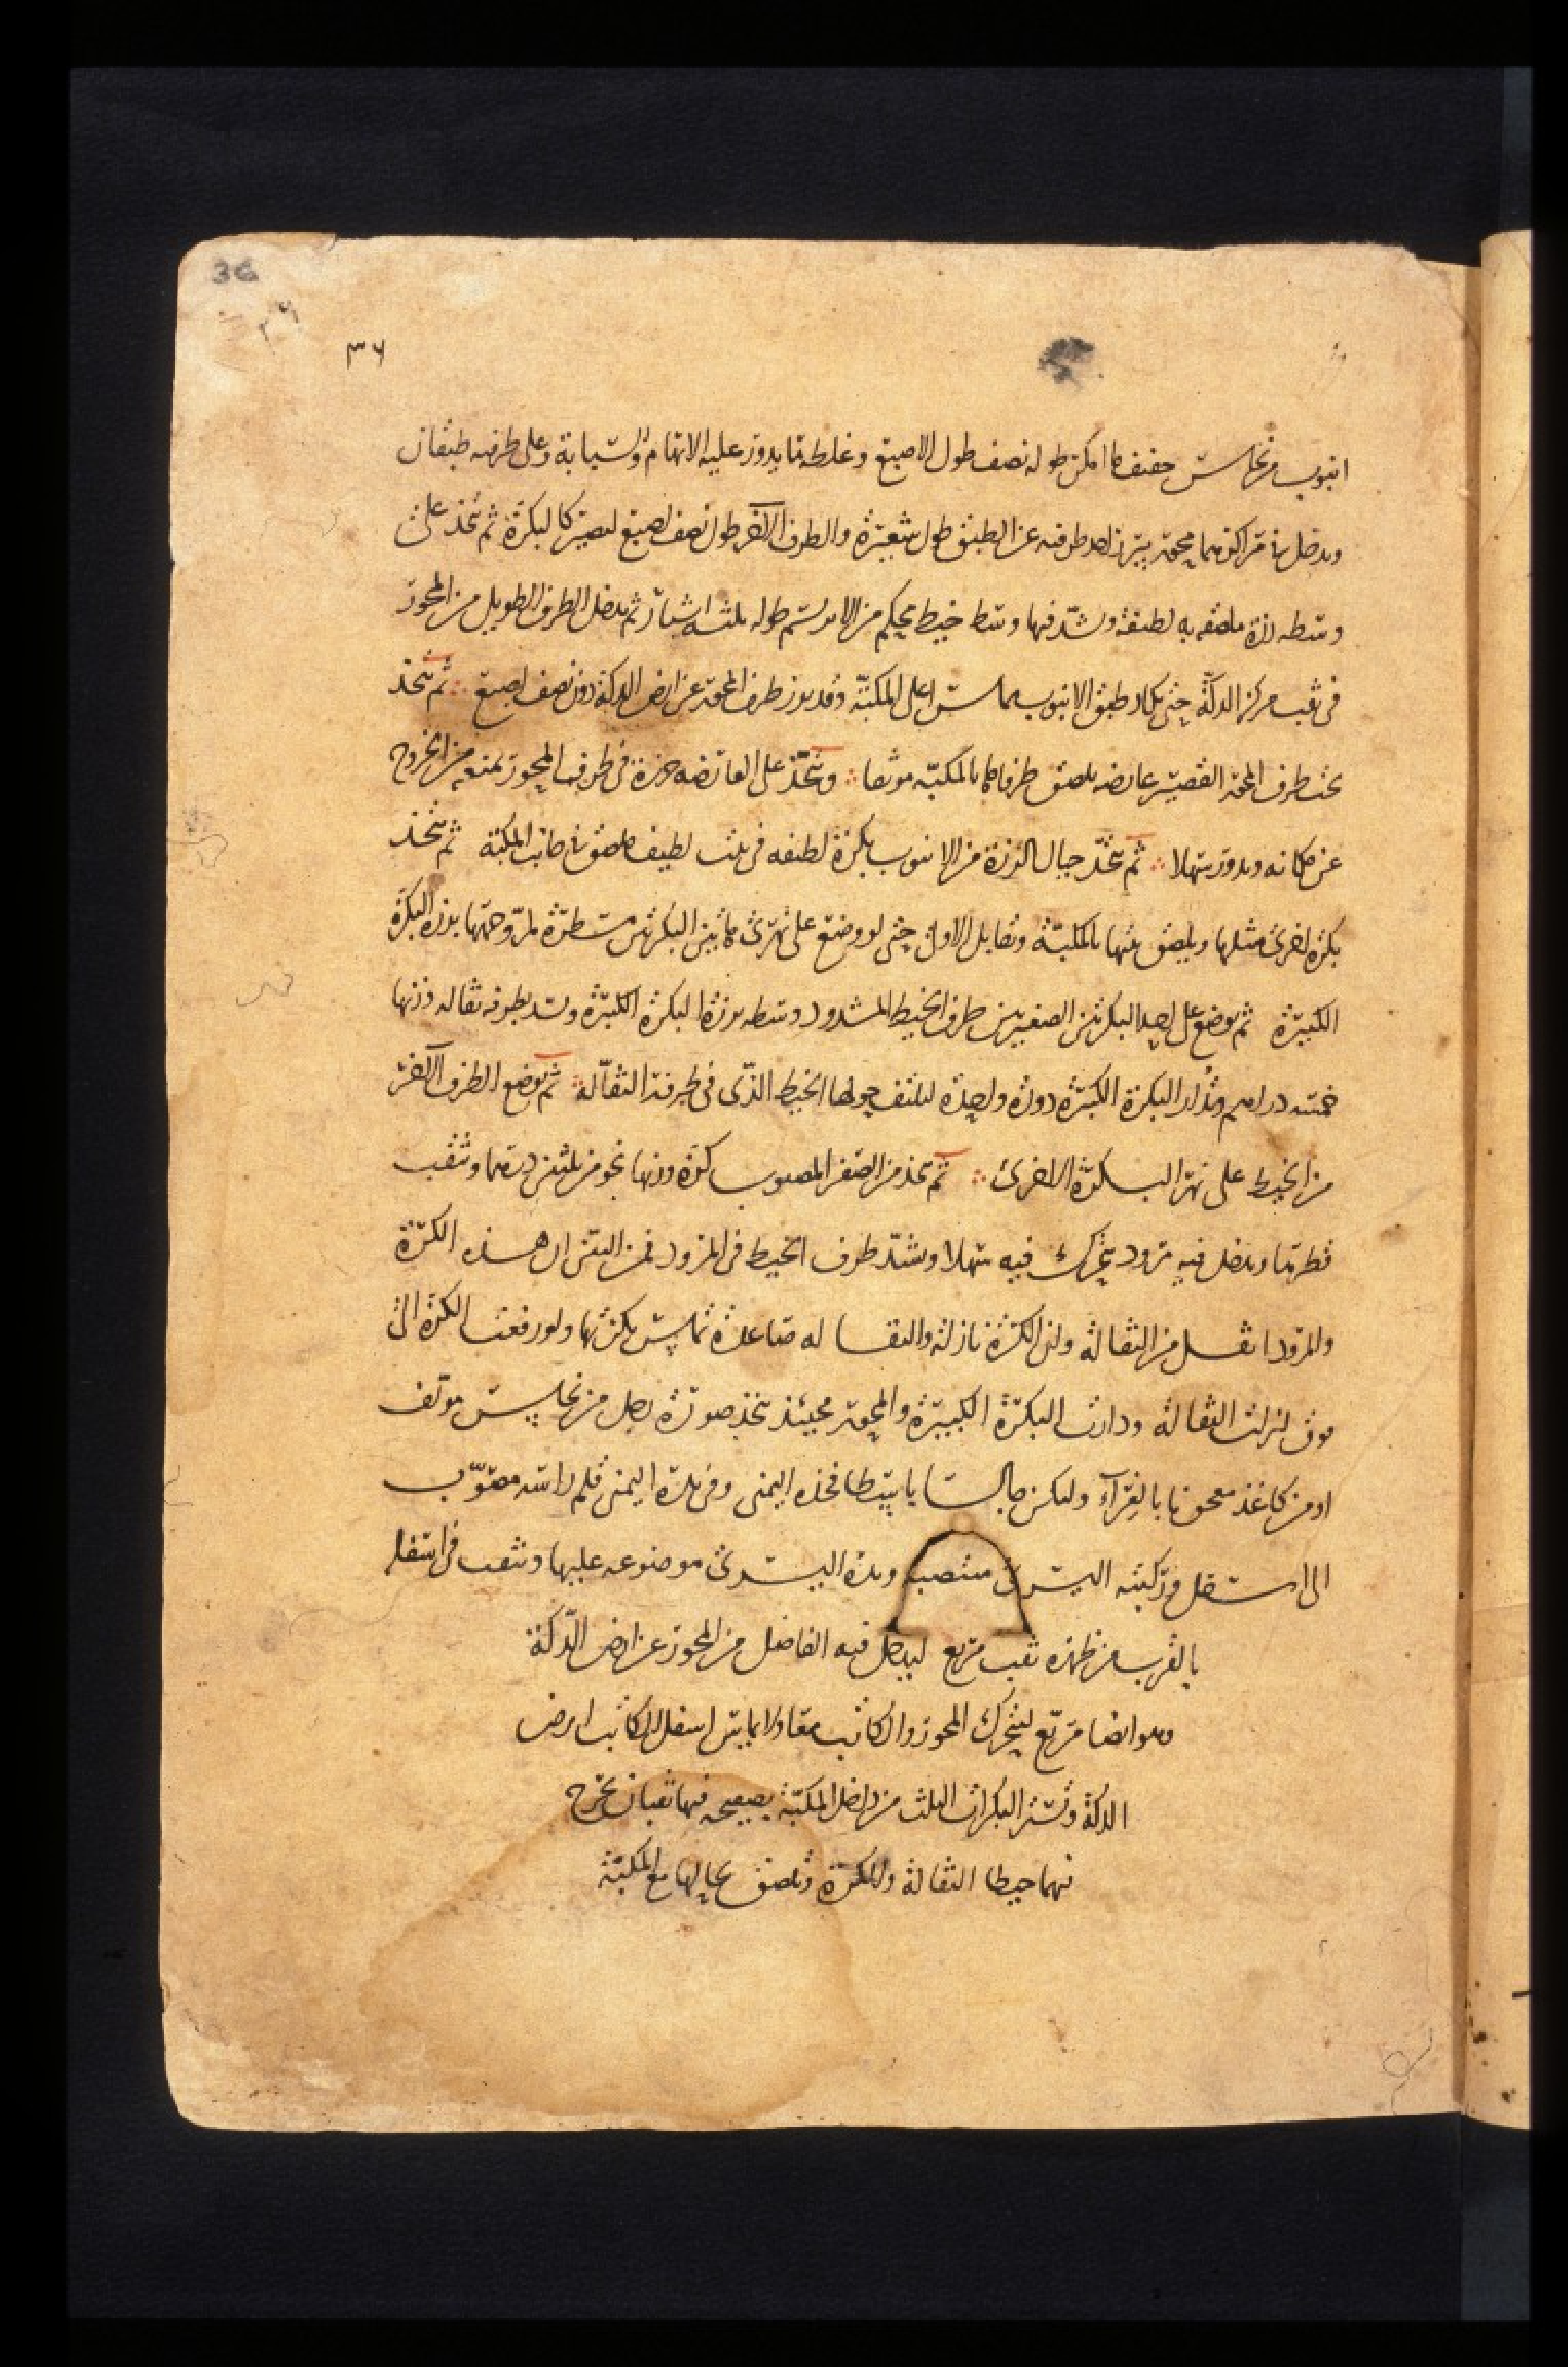 36
٣٦
٣٦
انبوب من نحاس خفيف ما امكن طوله نصف طول الاصبع وغلظه ما يدور عليه الابهام والسبابة وعلى طرفيه طبقان
ويدخل في مراكزهما محور يبرز احد طرفيه عن الطبق طول شعيرة والطرف الآخر طول نصف اصبع ليصير كالبكرة ثم تتخذ على
وسطه رزة ملصقه به لطيفة ويشد فيها وسط خيط محكم من الابريسم طوله ثلثه اشبار ثم يدخل الطرف الطويل من المحور
في ثقب مركز الدكة حتى يكاد طبق الانبوب يماس اعلى المكبة وقد برز طرف المحور عن ارض الدكة دون نصف اصبع ثم تتخذ
تحت طرف المحور القصير عارضه يلصق طرفاها بالمكبه موثقا ويتخذ على العارضه خرزة في طرف المحور تمنعه من الخروج
عن مكانه ويدور سهلا ثم تتخذ حيال الرزة من الانبوب بكرة لطيفه في بيت لطيف ملصق في جانب المكبة ثم تتخذ
بكرة اخرى مثلها ويلصق بيتها بالمكبة وتقابل الاولى حتى لو وضع على نهرى هاتين البكرتين مسطرة لمر وجهها برزة البكرة
الكبيرة ثم يوضع على احد البكرتين الصغيرتين طرف الخيط المشدود وسطه برزة البكرة الكبيرة ويشد بطرفه ثقاله وزنها
خمسه دراهم وتدار البكرة الكبيرة دورة واحدة ليلتف حولها الخيط الذى في طرفه الثقالة ثم يوضع الطرف الآخر
من الخيط على نهر البكرة الاخرى ثم تتخذ من الصفر المصبوب كرة وزنها نحو من ثلثين درهما وتثقب
قطرها ويدخل فيه مرود يتحرك فيه سهلا ويشد طرف الخيط في المرود فمن البين ان هذه الكرة
والمرود اثقل من الثقالة وان الكرة نازلة والثقالة صاعدة تماس بكرتها ولو رفعت الكرة الى
فوق لنزلت الثقالة ودارت البكرة الكبيرة والمحور فحينئذ تتخذ صورة رجل من نحاس مؤلف
او من كاغذ معجونا بالغراء وليكن جالسا باسطا فخذه اليمنى وفى يده اليمنى قلم راسه مصوب
الى اسفل وركبته اليسرى منتصبه ويده اليسرى موضوعه عليها ويثقب في اسفله
بالقرب من ظهره ثقب مربع ليدخل فيه الفاضل من المحور عن ارض الدكة
وهو ايضا مربع ليتحرك المحور والكاتب معا ولا يماس اسفل الكاتب ارض
الدكة وتستر البكرات الثلث من داخل المكبة بصفيحه فيها ثقبان تخرج
منهما خيطا الثقالة والكرة وتلصق بحيالها مع المكبة